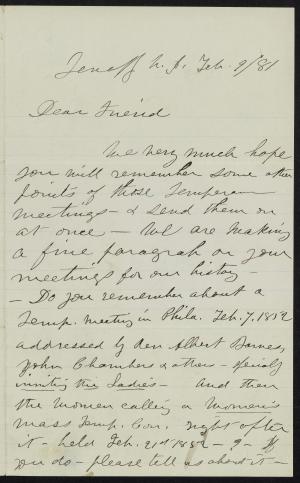 Tenafly N.J. Feb. 9/81
Dear Friend
We very much hope
you will remember some other
points of those Temperance
meetings - & send them on
at once - We are making
a fine paragraph on your
meetings for our history -
- Do you remember about a
Temp. meeting in Phila. Feb. 7, 1852
addressed by Rev Albert Barnes,
John Chambers & others - specially
inviting the Ladies - And then
the women calling a Women's
mass Temp. Con. right after
it - held Feb. 21st 1852 - ? - If
you do - please tell us about it -